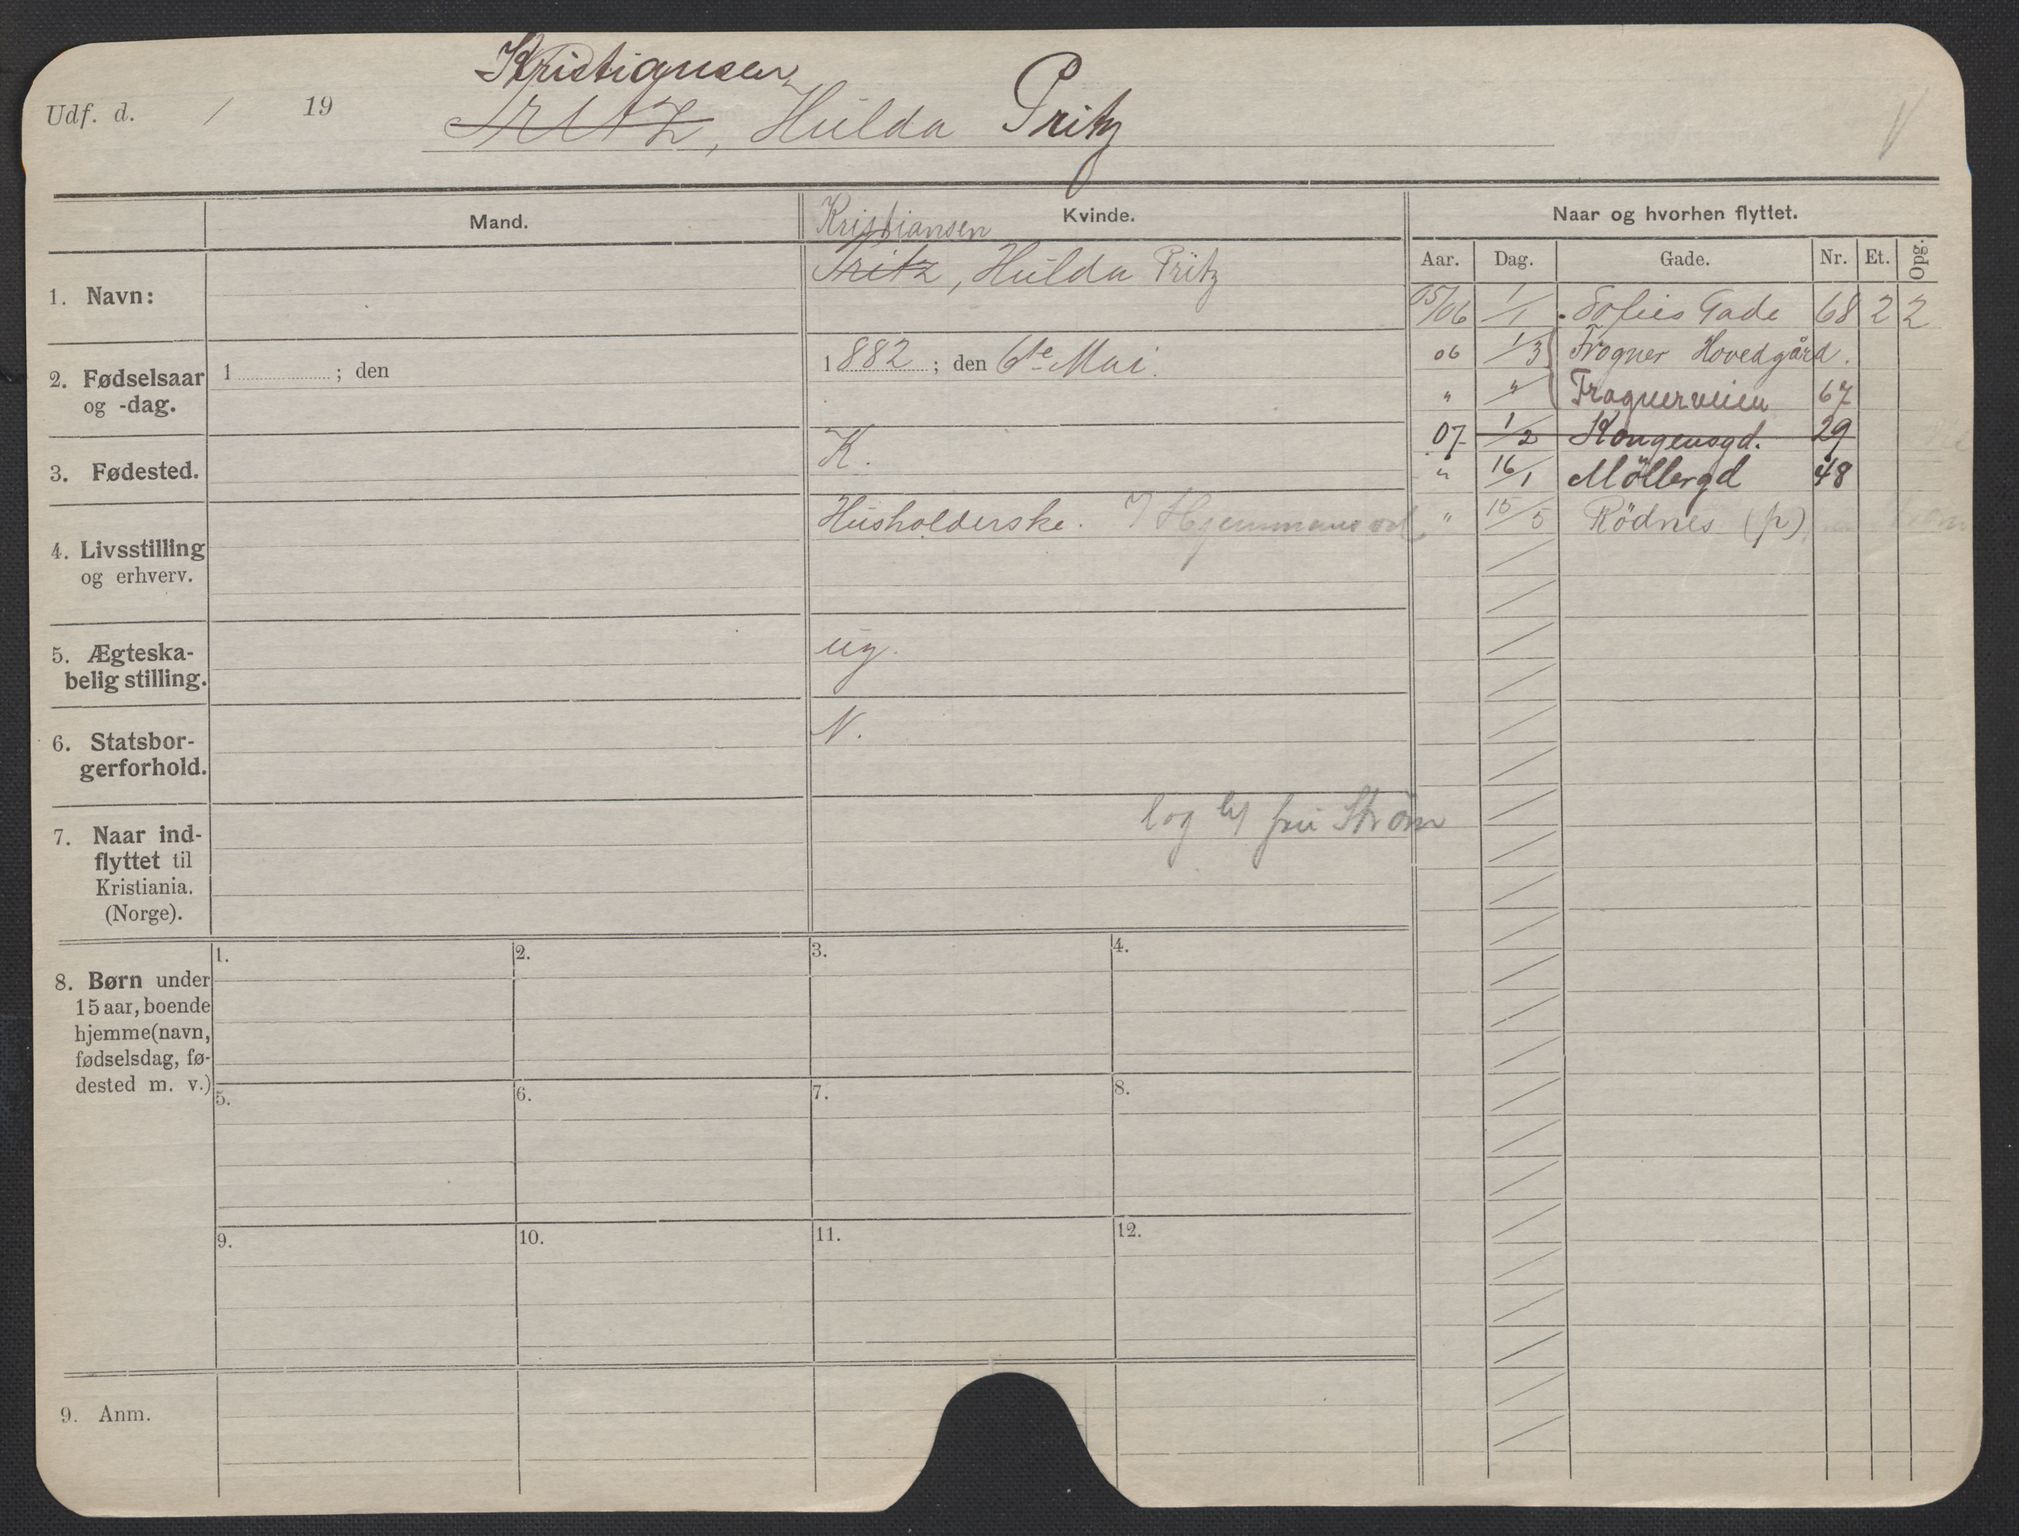 Udf. d. / 19
Kristiansen
Tritz, Hulda Pritz
Mand.
Kvinde.
Naar og hvorhen flyttet.
Aar. Dag. Gade. Nr. Et. Opg.
1. Navn:
Kristiansen
Tritz, Hulda Pritz
2. Fødselsaar
og -dag.
1 ; den
1882 ; den 6te Mai.
3. Fødested.
K.
4. Livsstilling
og erhverv.
Husholderske.
5. Ægteska-
belig stilling.
ug.
6. Statsbor-
gerforhold.
N.
7. Naar ind-
flyttet til
Kristiania.
(Norge).
Strøm
05/06 1/1 Sofies Gade 68 2 2
06 1/3 Frogner Hovedgård.
" " Frognerveien 67
07 1/2 Kongensgd. 29
" 16/1 Möllergd 48
" 15/5 Rödnes (p)
8. Børn under
15 aar, boende
hjemme (navn,
fødselsdag, fø-
dested m. v.)
1. 2. 3. 4.
5. 6. 7. 8.
9. 10. 11. 12.
9. Anm.